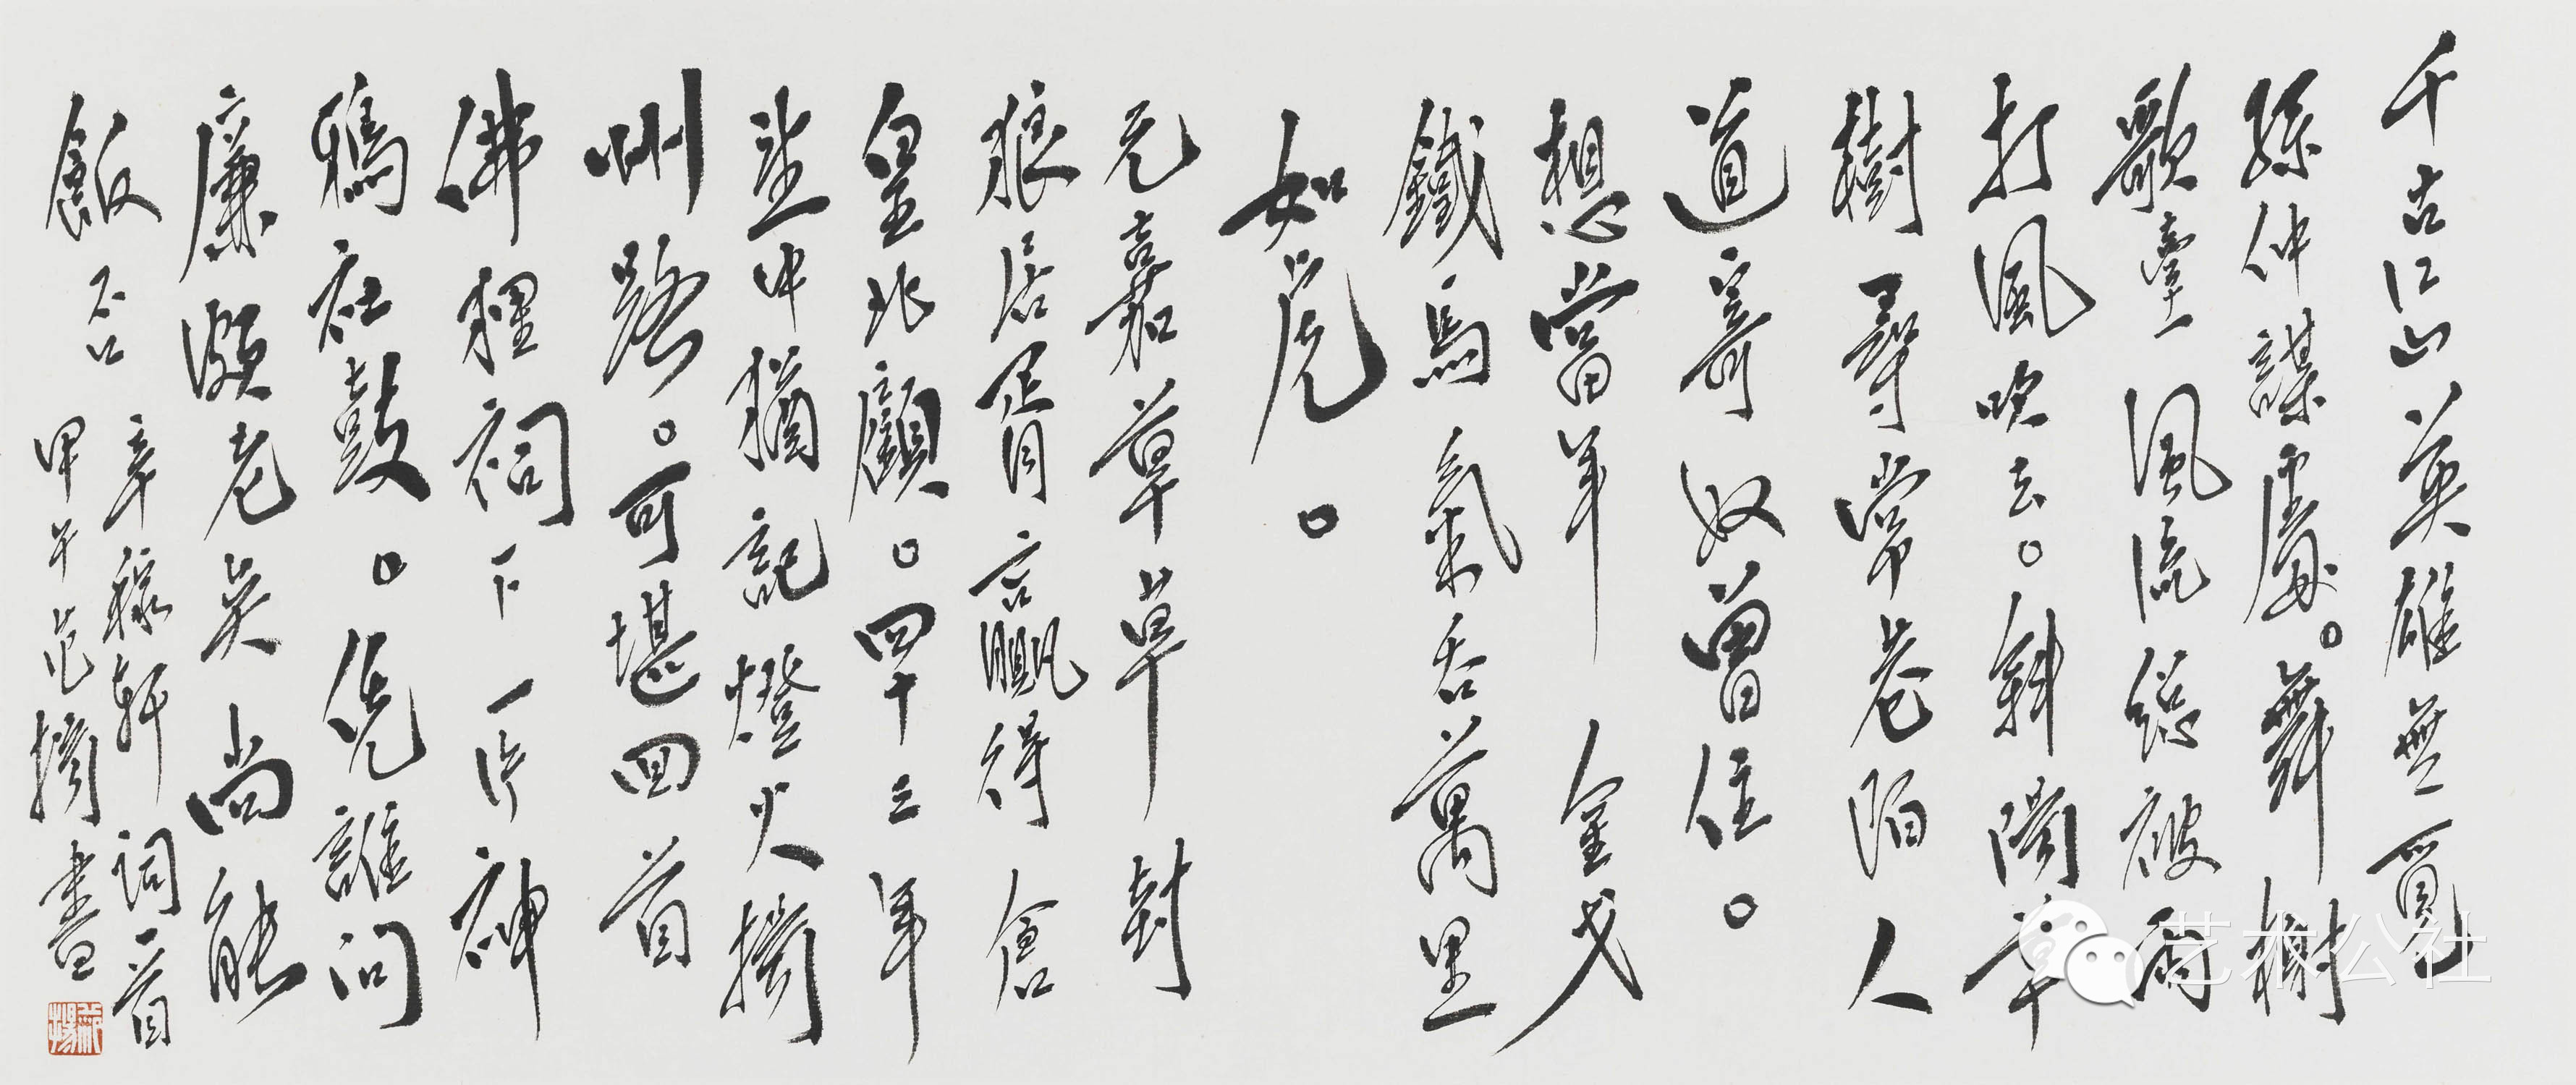 千古江山英雄無覓
孫仲謀處。舞榭
歌臺風流總被雨
打風吹去。斜陽草
樹尋常巷陌人
道寄奴曾住。
想當年金戈
鐵馬氣吞萬里
如虎。
元嘉草草封
狼居胥贏得倉
皇北顧。四十三年
望中猶記燈火揚
州路。可堪回首
佛狸祠下一片神
鴉社鼓。凭誰問
廉頗老矣尚能
飯否
辛稼軒詞一首
甲午范揚書
范揚
艺术公社